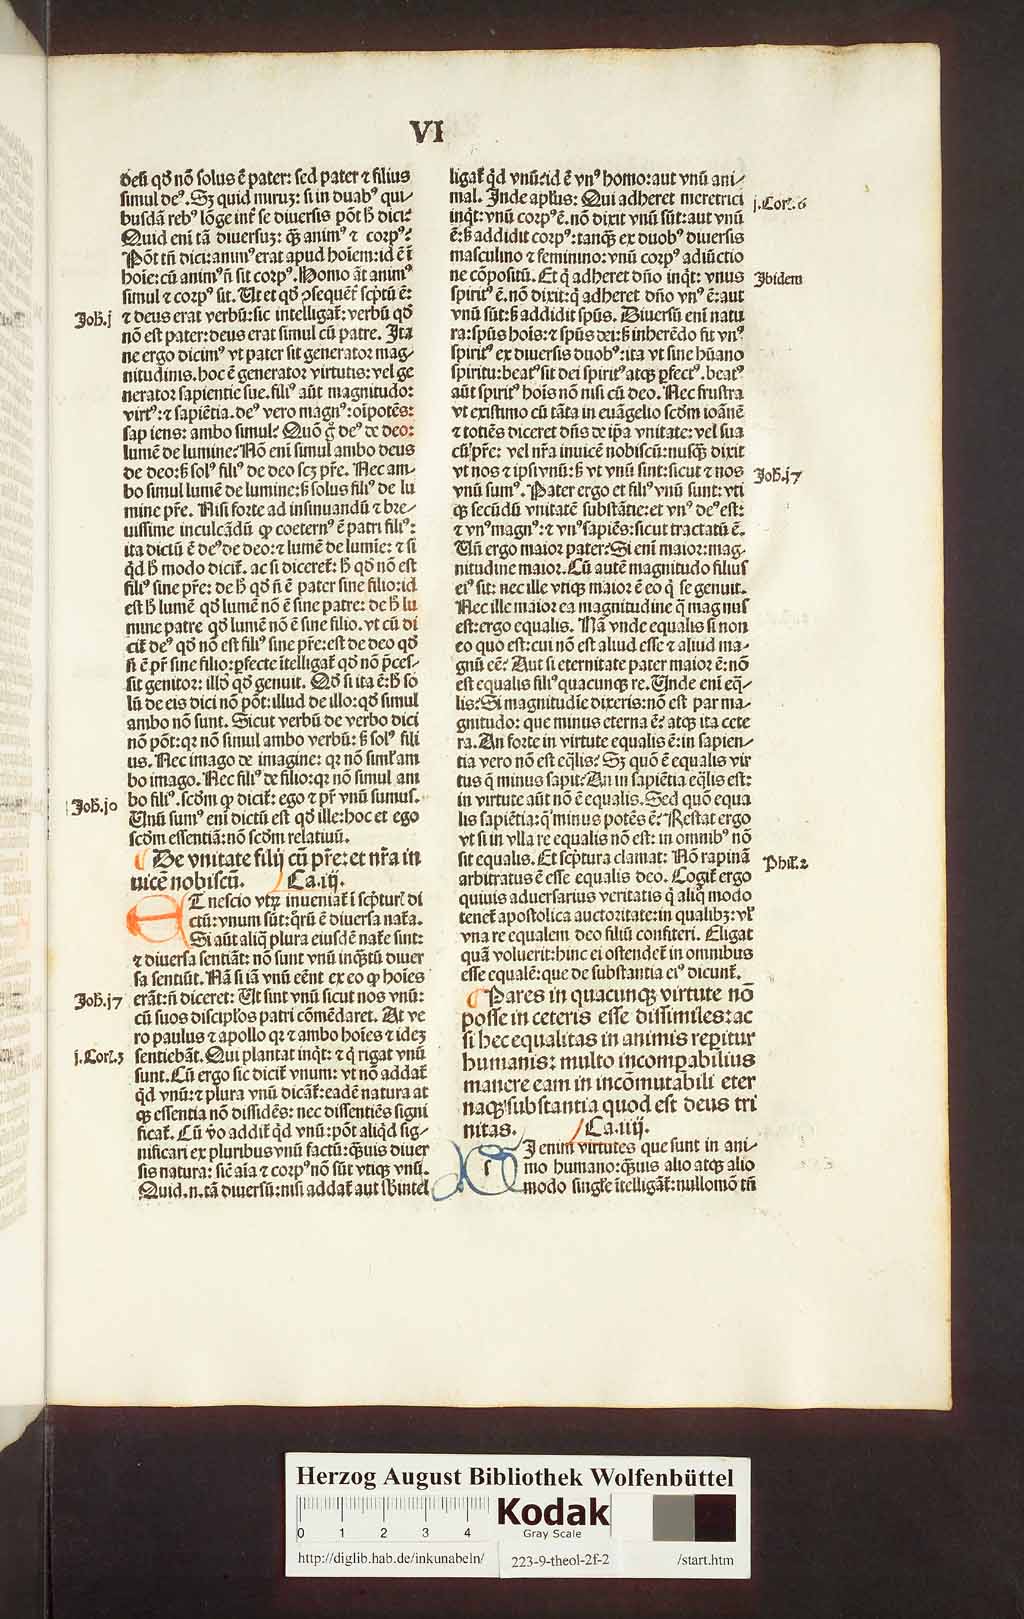 VI
deū qđ nō solus ē pater: sed pater ⁊ filius
simul deꝰ. Sꝫ quid miruꝫ: si in duabꝰ qui-
busdā rebꝰ lōge inf̄ se diuersis pōt ħ dici?
Quid eni tā diuersuꝫ: qꝫ̄ animꝰ ⁊ corpꝰ?
Pōt tn̄ dici: animꝰ erat apud hoīem: id ē ī
hoīe: cū animꝰ n̄ sit corpꝰ. Homo āt animꝰ
simul ⁊ corpꝰ sit. Ut et qđ ꝯsequēť scp̄tū ē:
Joh̄.j
⁊ deus erat verbū: sic intelligat̄: verbū qđ
nō est pater: deus erat simul cū patre. Ita
ne ergo dicimꝰ vt pater sit generator mag-
nitudinis. hoc ē generator virtutis: vel ge
nerator sapientie sue. filiꝰ aūt magnitudo:
virtꝰ: ⁊ sapiētia. deꝰ vero magnꝰ: oīpotēs:
sap iens: ambo simul? Quō g̊ deꝰ de deo:
lumē de lumine? Nō eni simul ambo deus
de deo: ꝫ solꝰ filiꝰ de deo scꝫ pr̄e. Nec am-
bo simul lumē de lumine: ꝫ solus filiꝰ de lu
mine pr̄e. Nisi forte ad insinuandū ⁊ bre-
uissime inculcādū ꝙ coeternꝰ ē patri filiꝰ:
ita dictū ē deꝰ de deo: ⁊ lumē de lumīe: ⁊ si
qđ ħ modo dicit̄. ac si diceret̄: ħ qđ nō est
filiꝰ sine pr̄e: de ħ qđ n̄ ē pater sine filio: id
est ħ lumē qđ lumē nō ē sine patre: de ħ lu
mine patre qđ lumē nō ē sine filio. vt cū di
cit̄ deꝰ qđ nō est filiꝰ sine pr̄e: est de deo qđ
n̄ ē pr̄ sine filio: ꝑfecte ītelligat̄ qđ nō p̄ces-
sit genitor: illđ qđ genuit. Qđ si ita ē: ħ so
lū de eis dici nō pōt: illud de illo: qđ simul
ambo nō sunt. Sicut verbū de verbo dici
nō pōt: qꝛ nō simul ambo verbū: ꝫ solꝰ fili
us. Nec imago de imagine: qꝛ nō siml̄ am
bo imago. Nec filiꝰ de filio: qꝛ nō simul am
Joh̄.jo
bo filiꝰ. scđm ꝙ dicit̄: ego ⁊ pr̄ vnū sumus.
Unū sumꝰ eni dictū est qđ ille: hoc et ego
scđm essentiā: nō scđm relatiuū.
De vnitate filij cū pr̄e: et nr̄a in
uicē nobiscū. Ca.iij.
ET nescio vtꝝ inueniat̄ ī scp̄turꝭ di
ctū: vnum sūt: qr̄ū ē diuersa nat̄a.
Si aūt aliq̄ plura eiusdē nat̄e sint:
⁊ diuersa sentiāt: nō sunt vnū inqꝫtū diuer
sa sentiūt. Nā si iā vnū eēnt ex eo ꝙ hoīes
Joh̄.j7
erāt: n̄ diceret: Ut sint vnū sicut nos vnū:
cū suos discip̄los patri cōmēdaret. At ve
ro paulus ⁊ apollo qꝛ ⁊ ambo hoīes ⁊ ideꝫ
j.Corꝭ.3
sentiebāt. Qui plantat inq̇t: ⁊ q̇ rigat vnū
sunt. Cū ergo sic dicit̄ vnum: vt nō addat̄
qđ vnū: ⁊ plura vnū dicāt̄: eadē natura at
qꝫ essentia nō dissidēs: nec dissentiēs signi
ficat̄. Cū v̊o addit̄ qđ vnū: pōt aliqđ sig-
nificari ex pluribus vnū factū: qꝫ̄uis diuer
sis natura: sic̄ aīa ⁊ corpꝰ nō sūt vtiqꝫ vnū.
Quid.n. tā diuersū: nisi addat̄ aut s̄bintel
ligat̄ qđ vnū: id ē vnꝰ homo: aut vnū ani-
mal. Inde apl̄us: Qui adheret meretrici
j.Corꝭ.6
inq̇t: vnū corpꝰ ē. nō dixit vnū sūt: aut vnū
ē: ꝫ addidit corpꝰ: tanqꝫ ex duobꝰ diuersis
masculino ⁊ feminino: vnū corpꝰ adiūctio
ne cōpositū. Et q̇ adheret dn̄o inq̇t: vnus
Ibidem
spiritꝰ ē. nō dixit: q̇ adheret dn̄o vnꝰ ē: aut
vnū sūt: ꝫ addidit spūs. Diuersū eni natu
ra: spūs hoīs: ⁊ spūs dei: ꝫ inherēdo fit vnꝰ
spiritꝰ ex diuersis duobꝰ: ita vt sine hūano
spiritu: beatꝰ sit dei spiritꝰ atqꝫ ꝑfectꝰ. beatꝰ
aūt spiritꝰ hoīs nō nisi cū deo. Nec frustra
vt existimo cū tāta in euāgelio scđm ioānē
⁊ totiēs diceret dn̄s de ip̄a vnitate: vel sua
cū pr̄e: vel nr̄a inuicē nobiscū: nusqꝫ dixit
vt nos ⁊ ipsi vnū: ꝫ vt vnū sint: sicut ⁊ nos
Joh̄.j7
vnū sumꝰ. Pater ergo et filiꝰ vnū sunt: vti
qꝫ secūdū vnitatē substātie: et vnꝰ deꝰ est:
⁊ vnꝰ magnꝰ: ⁊ vnꝰ sapiēs: sicut tractatū ē.
Un̄ ergo maior pater? Si eni maior: mag-
nitudine maior. Cū autē magnitudo filius
eiꝰ sit: nec ille vtiqꝫ maior ē eo q̄ se genuit.
Nec ille maior ea magnitudine q̄ magnus
est: ergo equalis. Nā vnde equalis si non
eo quo est: cui nō est aliud esse ⁊ aliud ma-
gnū eē? Aut si eternitate pater maior ē: nō
est equalis filiꝰ quacunqꝫ re. Unde eni eq̄-
lis? Si magnitudīe dixeris: nō est par ma-
gnitudo: que minus eterna ē? atqꝫ ita cete
ra. An forte in virtute equalis ē: in sapien-
tia vero nō est eq̄lis? Sꝫ quō ē equalis vir
tus q̄ minus sapit? An in sapiētia eq̄lis est:
in virtute aūt nō ē equalis. Sed quō equa
lis sapiētia: q̄ minus potēs ē? Restat ergo
vt si in vlla re equalis nō est: in omnibꝰ nō
sit equalis. Et scp̄tura clamat: Nō rapinā
Phil̄.2
arbitratus ē esse equalis deo. Cogit̄ ergo
quiuis aduersarius veritatis q̇ aliq̇ modo
tenet̄ apostolica auctoritate: in qualibꝫ: vł
vna re equalem deo filiū confiteri. Eligat
quā voluerit: hinc ei ostendet̄ in omnibus
esse equalē: que de substantia eiꝰ dicunt̄.
Pares in quacunqꝫ virtute nō
posse in ceteris esse dissimiles: ac
si hec equalitas in animis reꝑitur
humanis: multo incomꝑabilius
manere eam in incōmutabili eter
naqꝫ substantia quod est deus tri
nitas. Ca.iiij.
SJ enim virtutes que sunt in ani-
mo humano: qꝫ̄uis alio atqꝫ alio
modo singl̄e ītelligāt̄: nullomō tn̄
Herzog August Bibliothek Wolfenbüttel
0 1 2 3 4
Kodak
Gray Scale
http://diglib.hab.de/inkunabeln/ 223-9-theol-2f-2 /start.htm